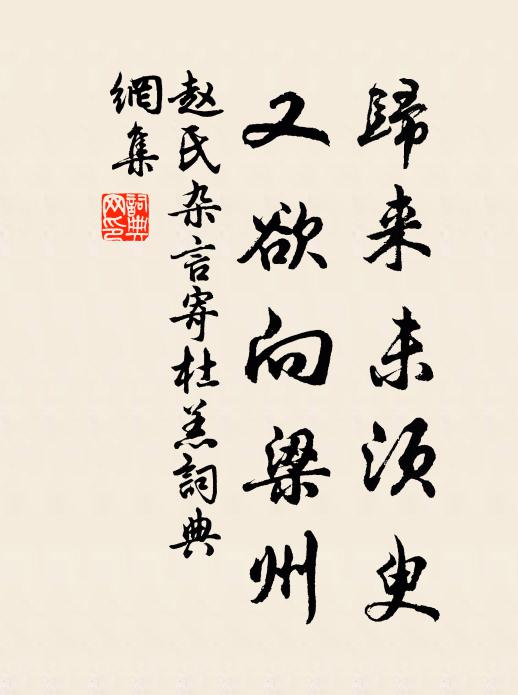 歸来未須臾
又欲向梁州
赵氏杂言寄杜羔詞典
網集
詞典
网印